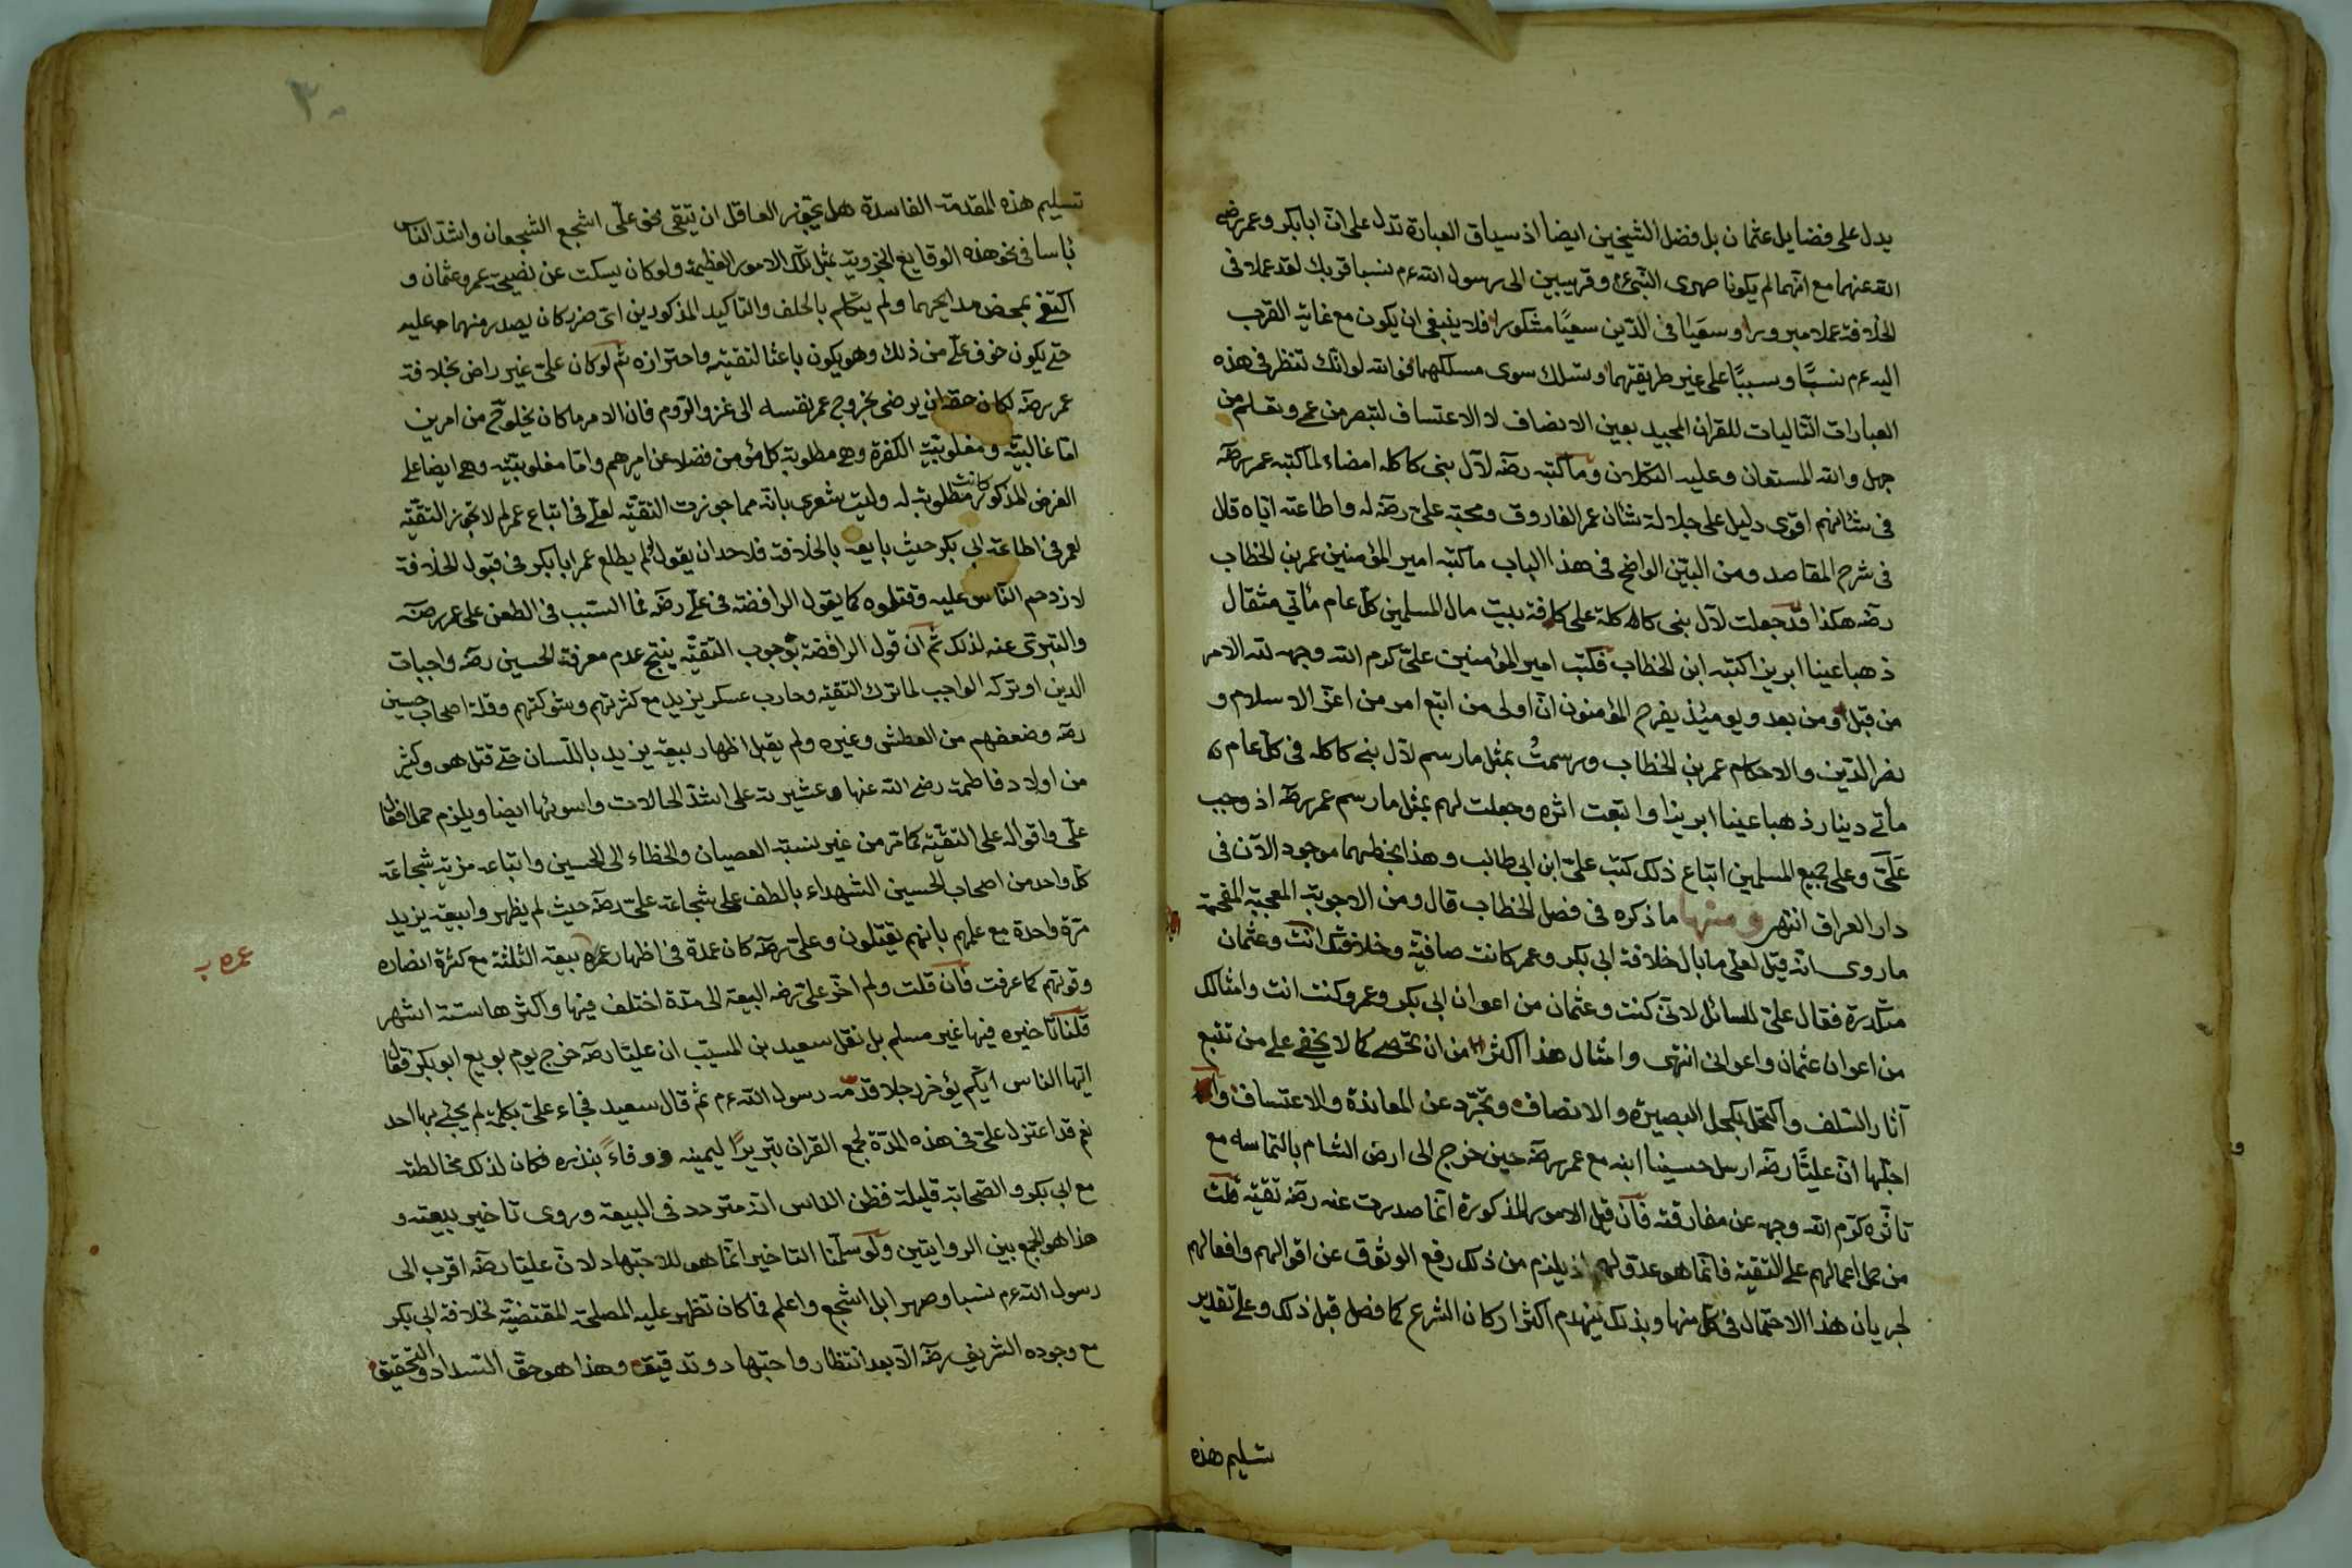 يدل على فضايل عثمان بل فضل الشيخين ايضا اذ سياق العبارة تدل على انّ ابا بكر وعمر رضى
الله عنهما مع انّهما لم يكونا صهرى النّبىّ وقريبين الى رسول الله عم نسبا قربك لقد عملا فى
الخلافة عملا مبرورا وسعيا فى الدّين سعيًا مشكورا فلا ينبغى ان يكون مع غاية القرب
اليه عم نسبًا وسببًا على غير طريقتهما وتسلك سوى مسلكهما فوالله لو انّك تنظر فى هذه
العبارات التّاليات للقران المجيد بعين الانصاف لا الاعتساف لتبصر من عمى وتعلم من
جهل والله المستعان وعليه التكلان وما كتبه رضه لآل بنى كاكله امضاء لما كتبه عمر رضه
فى شانهم اقوى دليل على جلالة شان عمر الفاروق ومحبّة علىّ رضه له واطاعته ايّاه قال
فى شرح المقاصد ومن البيّن الواضح فى هذا الباب ما كتبه امير المؤمنين عمر بن الخطاب
رضه هكذا قد جعلت لآل بنى كاكلة على كافة بيت مال المسلمين كلّ عام مأتي مثقال
ذهبا عينا ابريزا كتبه ابن الخطاب فكتب امير المؤمنين علىّ كرم الله وجهه لله الامر
من قبل ومن بعد ويومئذ يفرح المؤمنون انا اولى من اتبع امر من اعزّ الاسلام و
نصر الدّين والاحكام عمر بن الخطاب ورسمتُ بمثل ما رسم لآل بنى كاكله فى كلّ عام
مأتى دينار ذهبا عينا ابريزا واتبعت اثره وجعلت لهم بمثل ما رسم عمر رضه اذ وجب
عَلَىّ وعلى جميع المسلمين اتباع ذلك كتب علىّ ابن ابى طالب وهذا بخطهما موجود الآن فى
دار العراق انتهى ومنها ما ذكره فى فصل الخطاب قال ومن الاجوبة المعجبة المفحمة
ما روى انّه قيل لعلىّ ما بال خلافة ابى بكر وعمر كانت صافية وخلافتك انت وعثمان
متكدرة فقال علىّ للسائل لانّى كنت وعثمان من اعوان ابى بكر وعمر وكنت انت وامثالك
من اعوان عثمان واعوانى انتهى وامثال هذا اكثر من ان تحصى كما لا يخفى على من تتبع
آثار السّلف واكتحل بكحل البصيرة والانصاف وتجرّد عن المعاندة والاعتساف
اجلّها انّ عليًّا رضه ارسل حسينا ابنه مع عمر رضه حين خرج الى ارض الشام بالتماسه مع
تأثّره كرّم الله وجهه عن مفارقته فان قيل الامور المذكورة انّما صدرت عنه رضه تقيّة قلت
من حمل اعمالهم على التقيّة فانّما هو عدوّ لهم اذ يلزم من ذلك رفع الوثوق عن اقوالهم وافعالهم
لجريان هذا الاحتمال فى كلّ منها وبذلك ينهدم اكثر اركان الشرع كما فصل قبل ذلك وعلى تقدير
تسليم هذه
٣٠
تسليم هذه المقدمة الفاسدة هل يجوّز العاقل ان يتقى نحو علىّ اشجع الشجعان واشدّ الناس
بأسا فى نحو هذه الوقايع الجزوية بمثل تلك الامور العظيمة ولو كان يسكت عن نصيحة عمر وعثمان و
اكتفى بمحض مدايحهما ولم يتكلم بالحلف والتاكيد المذكورين اىّ ضرر كان يصدر منهما عليه
حتى يكون خوف علىّ من ذلك وهو يكون باعثا لتقيته واحترازه ثم لو كان علىّ غير راض بخلافة
عمر رضه لكان حقه ان يرضى بخروج عمر بنفسه الى غزو الروم فان الامر ما كان يخلو ح من امرين
امّا غالبيّته ومغلوبيّة الكفرة وهى مطلوبة كلّ مؤمن فضلا عن اميرهم وامّا مغلوبيّته وهى ايضا على
الغرض المذكور كانت مطلوبة له وليت شعرى بانّه مما جوزت التقيّه لعلى فى اتباع عمر لم لا تجوز التقيّه
لعمر فى اطاعة ابى بكر حيث بايعه بالخلافة فلاحد ان يقول لو لم يطلع عمر ابا بكر فى قبول الخلافة
لازدحم النّاس عليه وقتلوه كما يقول الرافضة فى علىّ رضه فما السّبب فى الطعن على عمر رضه
والتبرّى عنه لذلك ثم ان قول الرافضة بوجوب التقيّه ينتج عدم معرفة الحسين رضه واجبات
الدين او تركه الواجب لما ترك التقيّه وحارب عسكر يزيد مع كثرتهم وشوكتهم وقلة اصحاب حسين
رضه وضعفهم من العطش وغيره ولم يقبل اظهار بيعة يزيد باللّسان حتى قتل هو وكثير
من اولاد فاطمة رضى الله عنها وعشيرته على اشدّ الحالات واسوئها ايضا ويلزم حمل افعال
علىّ واقواله على التقيّه كما مرّ من غير نسبة العصيان والخطاء الى الحسين واتباعه مزيّة شجاعة
كلّ واحد من اصحاب الحسين الشهداء بالطف على شجاعة علىّ رضه حيث لم يظهروا بيعة يزيد
مرّة واحدة مع علمهم بانهم يقتلون وعلىّ رضه كان عمدة فى اظهار عمره بيعة الثلثة مع كثرة انصاره
عمره ب
وقوتهم كما عرفت فان قلت ولم اخّر علىّ رضه البيعة الى مدّة اختلف فيها واكثرها ستة اشهر
قلنا تاخيره فيها غير مسلم بل نقل سعيد بن المسيّب ان عليّا رضه خرج يوم بويع ابو بكر فقال
ايّها الناس ايّكم يؤخر رجلا قدّمه رسول الله عم ثم قال سعيد فجاء علىّ بكلمة لم يجئ بها احد
نعم قد اعتزل علىّ فى هذه المدّة لجمع القران تبريرًا ليمينه ووفاءً بنذره فكان لذلك مخالطته
مع ابى بكر والصّحابة قليلة فظن النّاس انه متردد فى البيعة وروى تاخير بيعته و
هذا هو الجمع بين الروايتين ولو سلّمنا التاخير انّما هو للاجتهاد لانّ عليّا رضه اقرب الى
رسول الله عم نسبا وصهرا بل اشجع واعلم فما كان تظهر عليه المصلحة المقتضيّة لخلافة ابى بكر
مع وجوده الشريف رضه الّا بعد انتظار واجتهاد وتدقيق وهذا هو حقّ السّداد والتحقيق